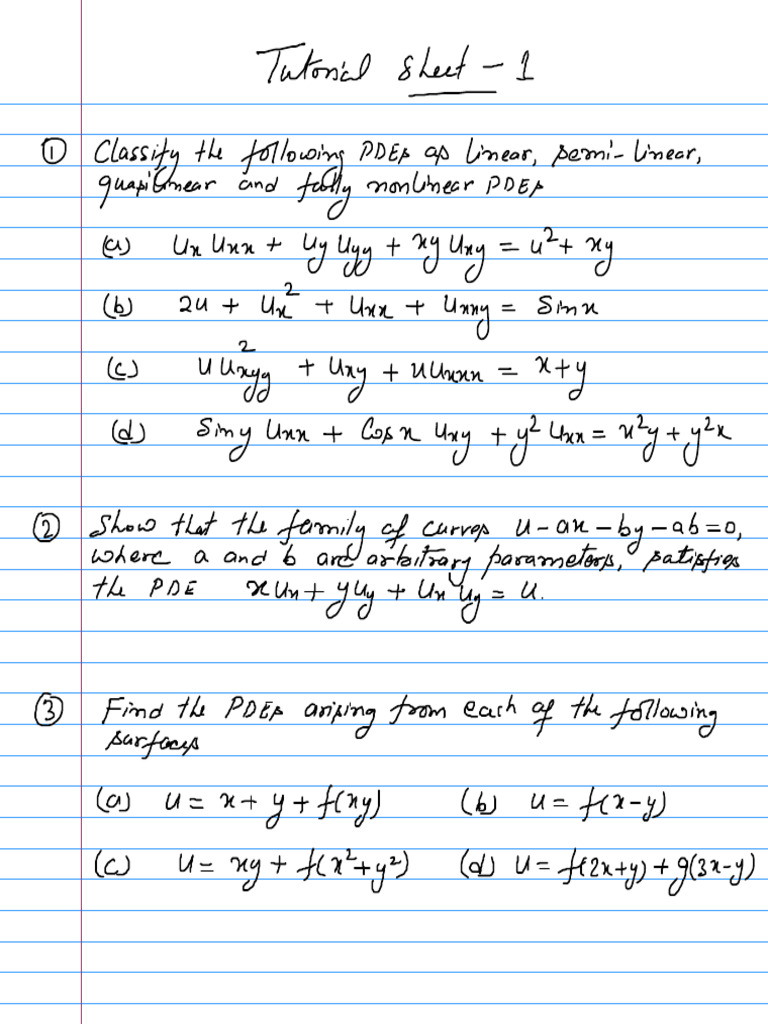 Tutorial Sheet - 1
① Classify the following PDEs as linear, semi-linear,
quasilinear and fully nonlinear PDEs
(a) uₓ uₓₓ + u_y u_yy + xy u_xy = u² + xy
(b) 2u + uₓ² + uₓₓ + u_xxy = Sin x
(c) u u_xyy² + u_xy + u u_xxx = x + y
(d) Sin y u_xx + Cos x u_xy + y² u_xx = x²y + y²x
② Show that the family of curves u - ax - by - ab = 0,
where a and b are arbitrary parameters, satisfies
the PDE x u_x + y u_y + u_x u_y = u.
③ Find the PDEs arising from each of the following
surfaces
(a) u = x + y + f(xy) (b) u = f(x-y)
(c) u = xy + f(x²+y²) (d) u = f(2x+y) + g(3x-y)